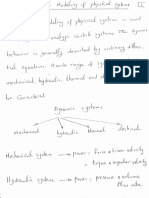 Modeling of physical systems
modeling of physical systems is most
analyze control systems. The dynamic
behavior is generally described by ordinary differ-
equations. A wide range of
mechanical, hydraulic, thermal and electrical
be Considered.
Dynamic systems
Mechanical hydraulic thermal electrical
Mechanical system → power: force x linear velocity
torque x angular velocity
Hydraulic system → power: pressure x volume
flow rate